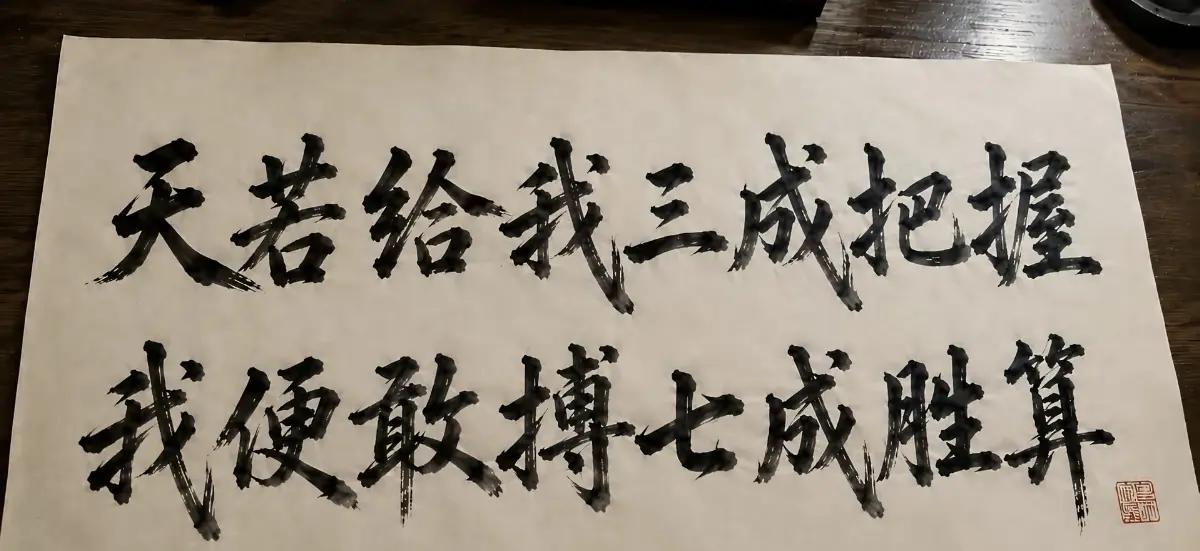 天若给我三成把握
我便敢搏七成胜算